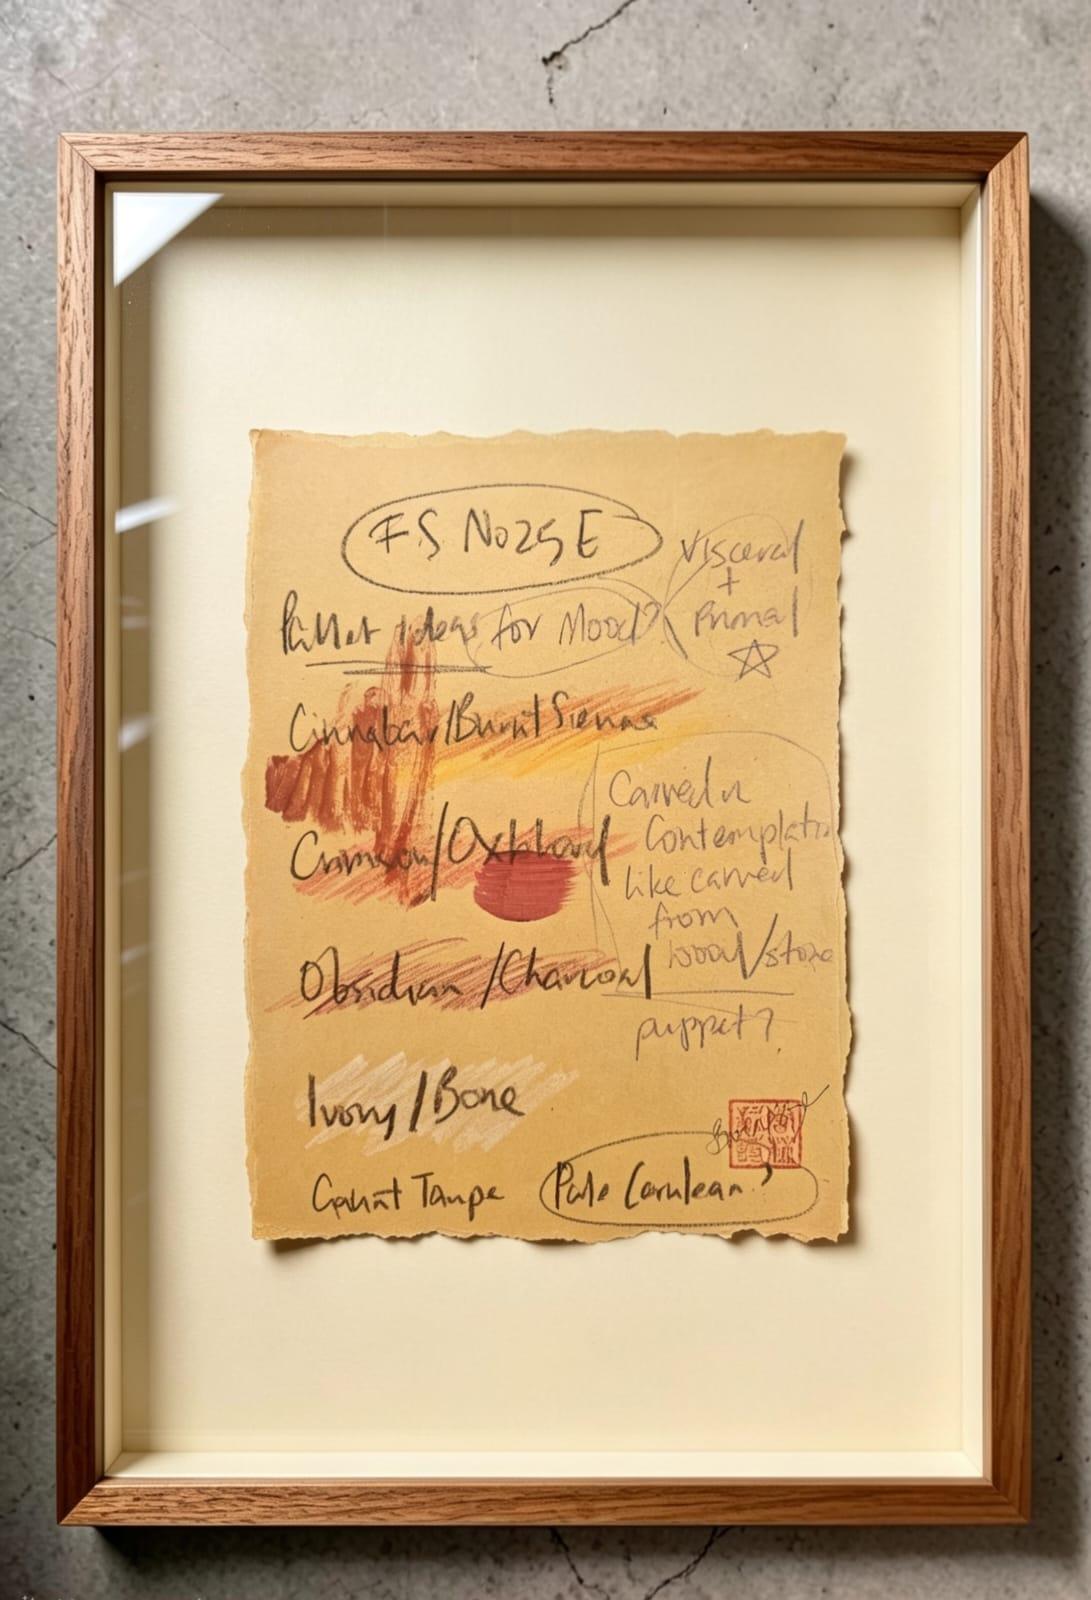 FS No25E
Visceral
+
Primal
Pallet ideas for Mood?
Cinnabar/Burnt Sienna
Carved in
Contemplation
like carved
from
wood/stone
Crimson/Oxblood
Obsidian/Charcoal
puppet?
Ivory/Bone
Taupe
Pale Cerulean?